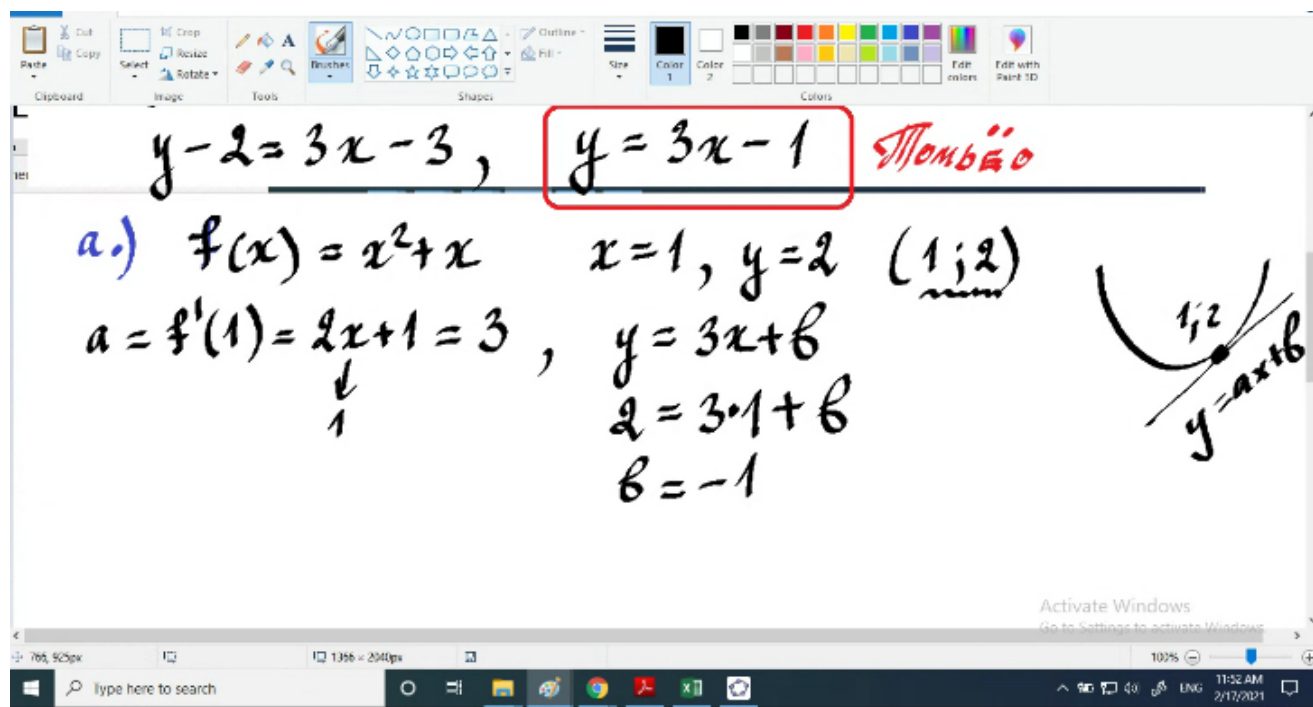 Cut
Copy
Paste
Clipboard
Crop
Resize
Rotate
Select
Image
Tools
Brushes
Shapes
Outline
Fill
Size
Color 1
Color 2
Colors
Edit colors
Edit with Paint 3D
y-2=3x-3, y=3x-1 Томьёо
a.) f(x)=x²+x x=1, y=2 (1;2)
a=f'(1)=2x+1=3, y=3x+b
1
2=3·1+b
b=-1
1;2
y=ax+b
Activate Windows
Go to Settings to activate Windows.
766, 925px 1366 × 2040px 100%
Type here to search ENG 11:52 AM
2/17/2021